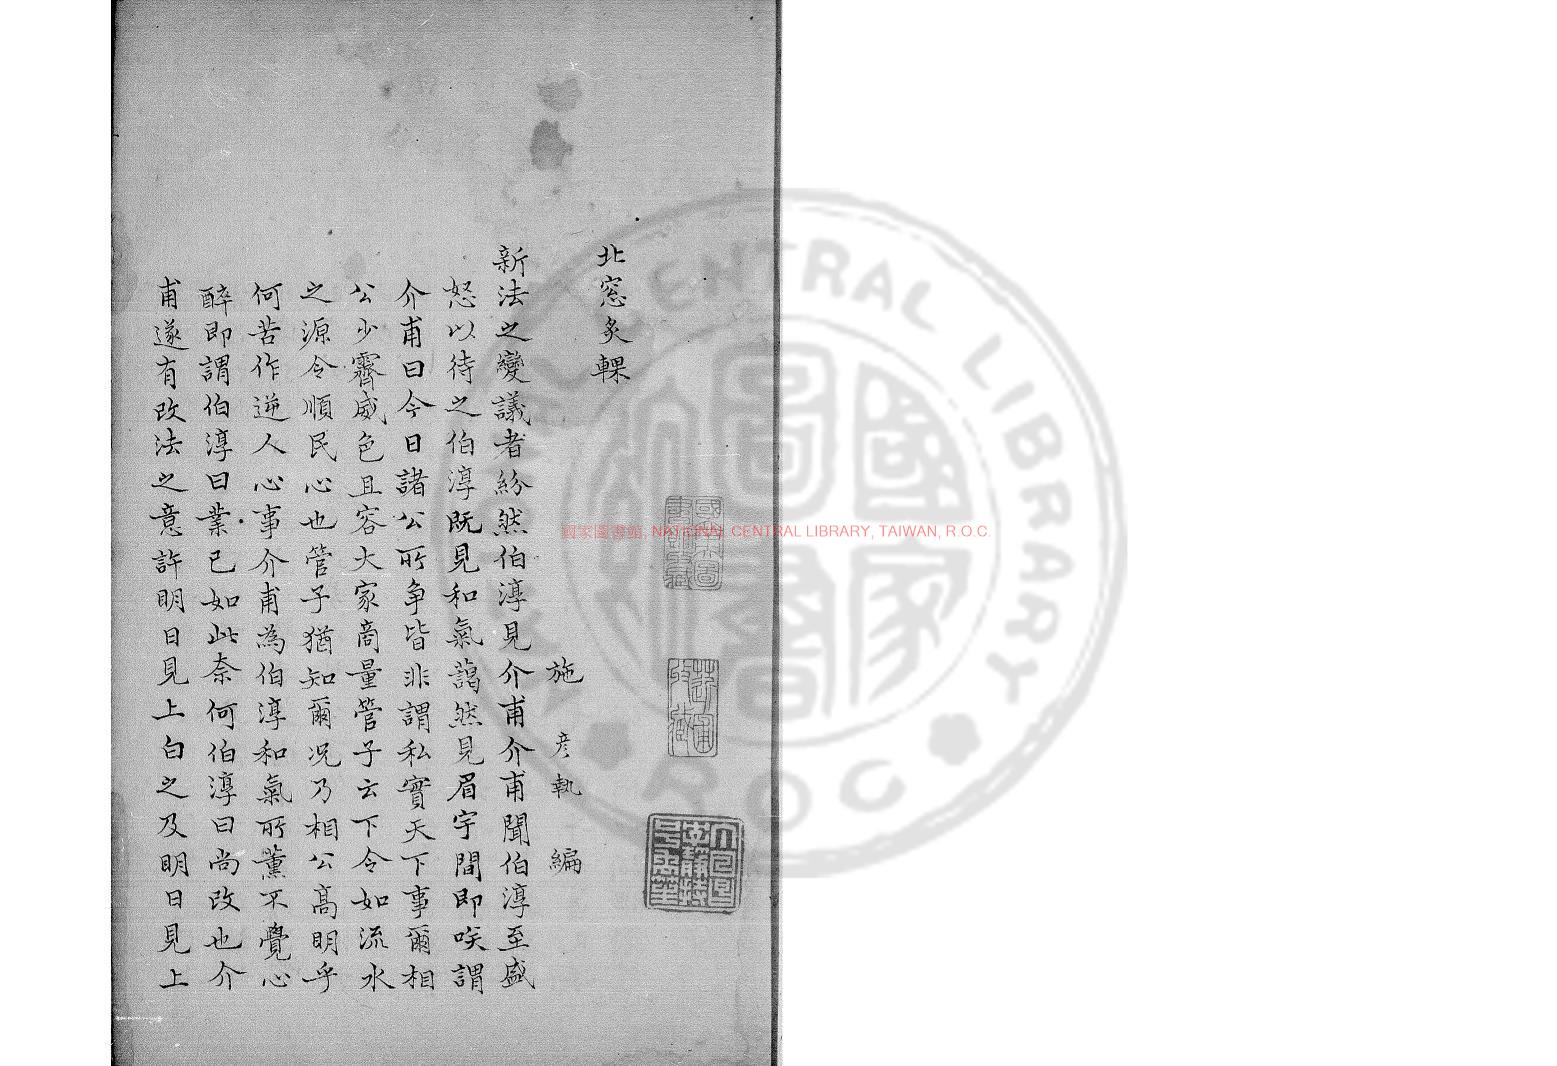 北窓炙輠
施彦執編
新法之變議者紛然伯淳見介甫介甫聞伯淳至盛
怒以待之伯淳既見和氣藹然見眉宇間即唉謂
介甫曰今日諸公所争皆非謂私實天下事爾相
公少霽威色且容大家商量管子云下令如流水
之源令順民心也管子猶知爾况乃相公髙明乎
何苦作逆人心事介甫為伯淳和氣所薰不覺心
醉即謂伯淳曰業已如此奈何伯淳曰尚改也介
甫遂有改法之意許明日見上白之及明日見上
國家圖書館, NATIONAL CENTRAL LIBRARY, TAIWAN, R.O.C.
CENTRAL LIBRARY
ROC